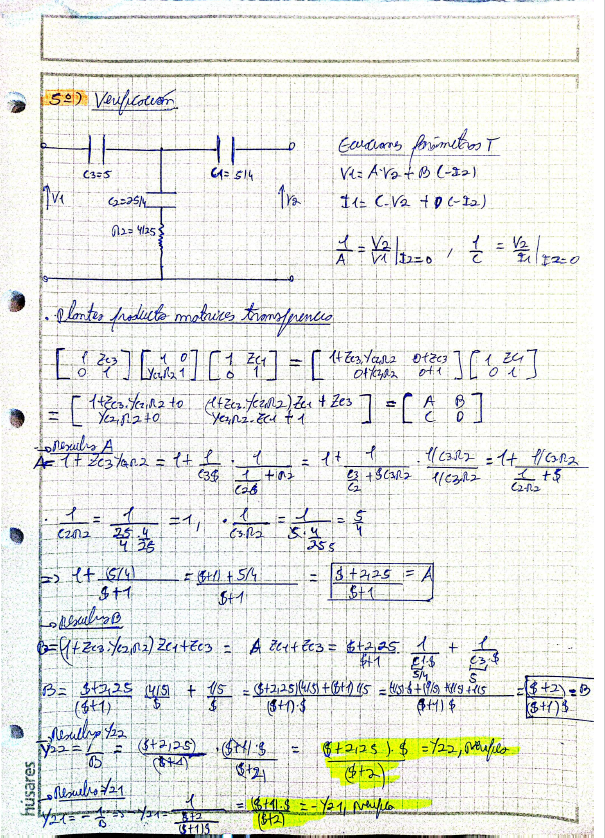 5º) Verificación
C3=5
C1=5/4
V1
C2=25/4
V2
R2=4/25
Ecuaciones parámetros T
V1=A·V2+B(-I2)
I1=C·V2+D(-I2)
1/A = V2/V1 |I2=0 , 1/C = V2/I1 |I2=0
· Planteo producto matrices transferencia
[1 Zc3; 0 1] [1 0; Yc2,R2 1] [1 Zc1; 0 1] = [1+Zc3.Yc2,R2 0+Zc3; 0+Yc2,R2 0+1] [1 Zc1; 0 1]
= [1+Zc3.Yc2,R2+0 (1+Zc3.Yc2,R2)Zc1+Zc3; Yc2,R2+0 Yc2,R2.Zc1+1] = [A B; C D]
→ Resuelvo A
A=1+Zc3Yc2,R2 = 1+ 1/C3$ · 1/(1/C2$ +R2) = 1+ 1/(C3/C2 +$C3R2) · (1/C3R2)/(1/C3R2) = 1+ (1/C3R2)/(1/C2R2 +$)
· 1/C2R2 = 1/(25/4 · 4/25) = 1, · 1/C3R2 = 1/(5·4/25) = 5/4
=> 1+ (5/4)/($+1) = (($+1)+5/4)/($+1) = ($+2,25)/($+1) = A
→ Resuelvo B
B=(1+Zc3.Yc2,R2)Zc1+Zc3 = A Zc1+Zc3 = ($+2,25)/($+1) · 1/(C1·$) + 1/(C3·$)
5/4
5
B = ($+2,25)/($+1) (4/5)/$ + (1/5)/$ = (($+2,25)(4/5)+($+1)1/5)/(($+1)·$) = (4/5$+(9/5)+$1/5+1/5)/(($+1)$) = ($+2)/(($+1)$) = B
→ Resuelvo Y22
Y22 = 1/B = ($+2,25)/($+1) · (($+1)·$)/($+2) = (($+2,25)·$)/($+2) = Y22, verifica
→ Resuelvo Y21
Y21 = -1/B => -Y21 = 1/(($+2)/(($+1)$)) = (($+1)·$)/($+2) = -Y21, verifica
húsares